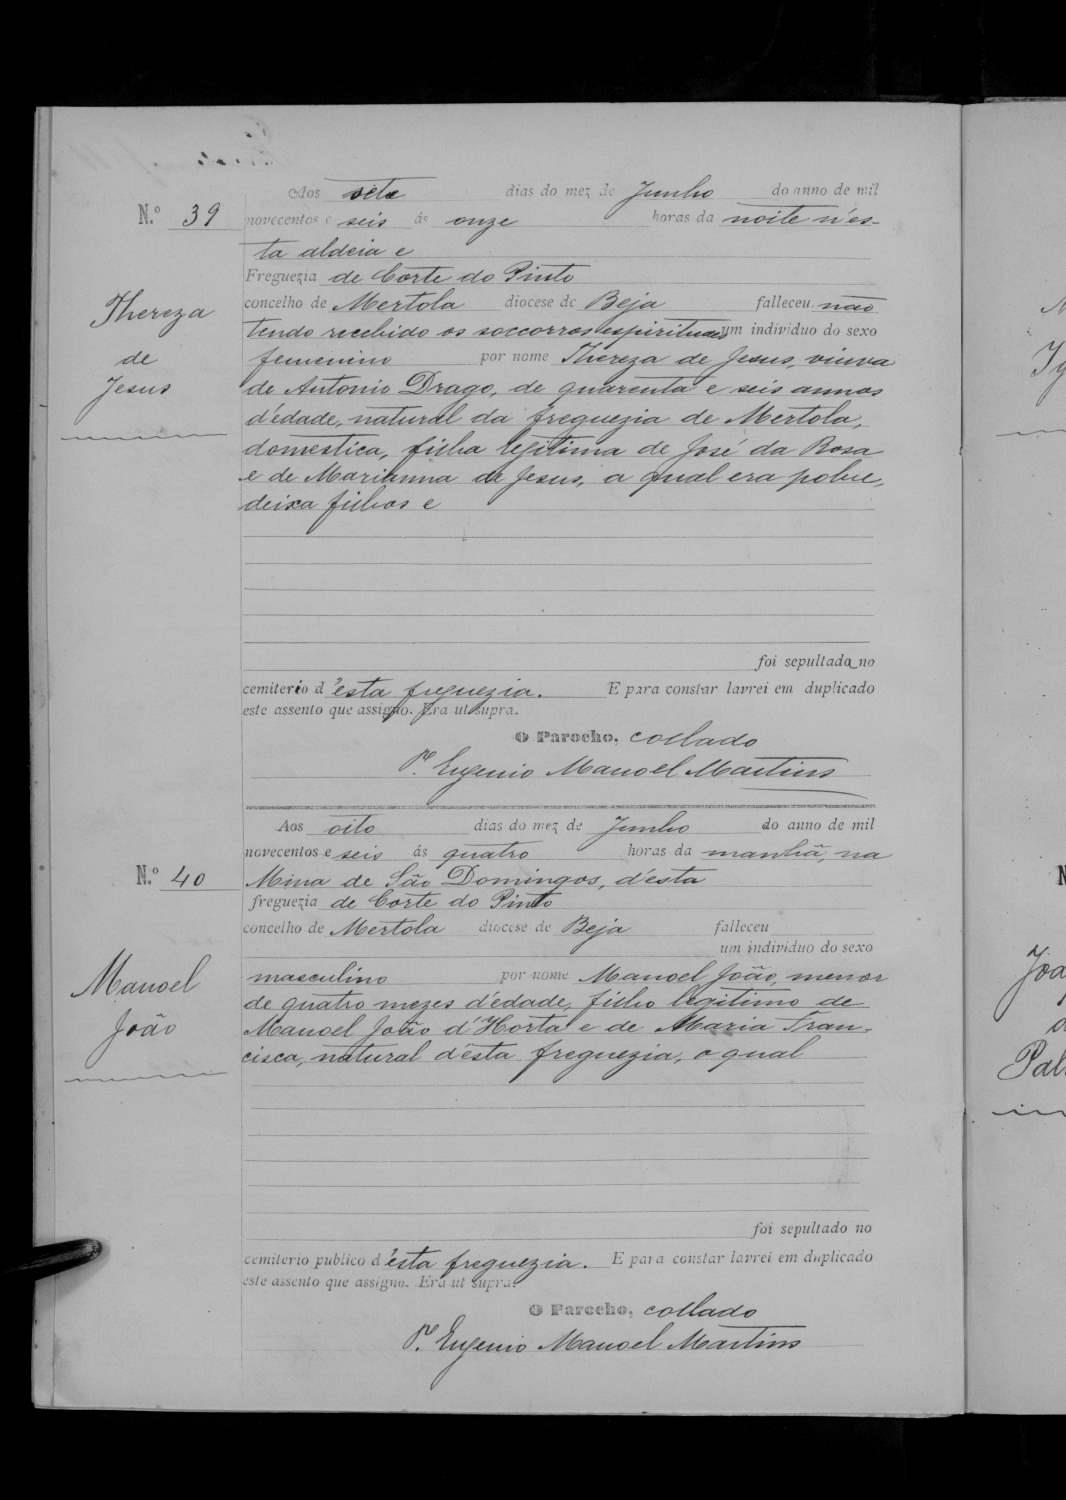 Aos sete dias do mez de Junho do anno de mil
N.º 39 novecentos e seis ás onze horas da noite n'es-
ta aldeia e
Freguezia de Corte do Pinto
Thereza concelho de Mertola diocese de Beja falleceu não
tendo recebido os soccorros espirituaes um individuo do sexo
de femenino por nome Thereza de Jesus, viuva
Jesus de Antonio Drago, de quarenta e seis annos
d'édade, natural da freguezia de Mertola,
domestica, filha legitima de José da Rosa
e de Marianna de Jesus, a qual era pobre,
deixa filhos e
foi sepultada no
cemiterio d'ésta freguezia. E para constar lavrei em duplicado
este assento que assigno. Era ut supra.
O Parocho, collado
P.e Eugenio Manoel Martins
Aos oito dias do mez de Junho do anno de mil
novecentos e seis ás quatro horas da manhã, na
N.º 40 Mina de São Domingos, d'ésta
freguezia de Corte do Pinto
concelho de Mertola diocese de Beja falleceu
um individuo do sexo
Manoel masculino por nome Manoel João, menor
de quatro mezes d'édade, filho legitimo de
João Manoel João d'Horta e de Maria Fran-
cisca, natural d'ésta freguezia, o qual
foi sepultado no
cemiterio publico d'ésta freguezia. E para constar lavrei em duplicado
este assento que assigno. Era ut supra.
O Parocho, collado
P.e Eugenio Manoel Martins